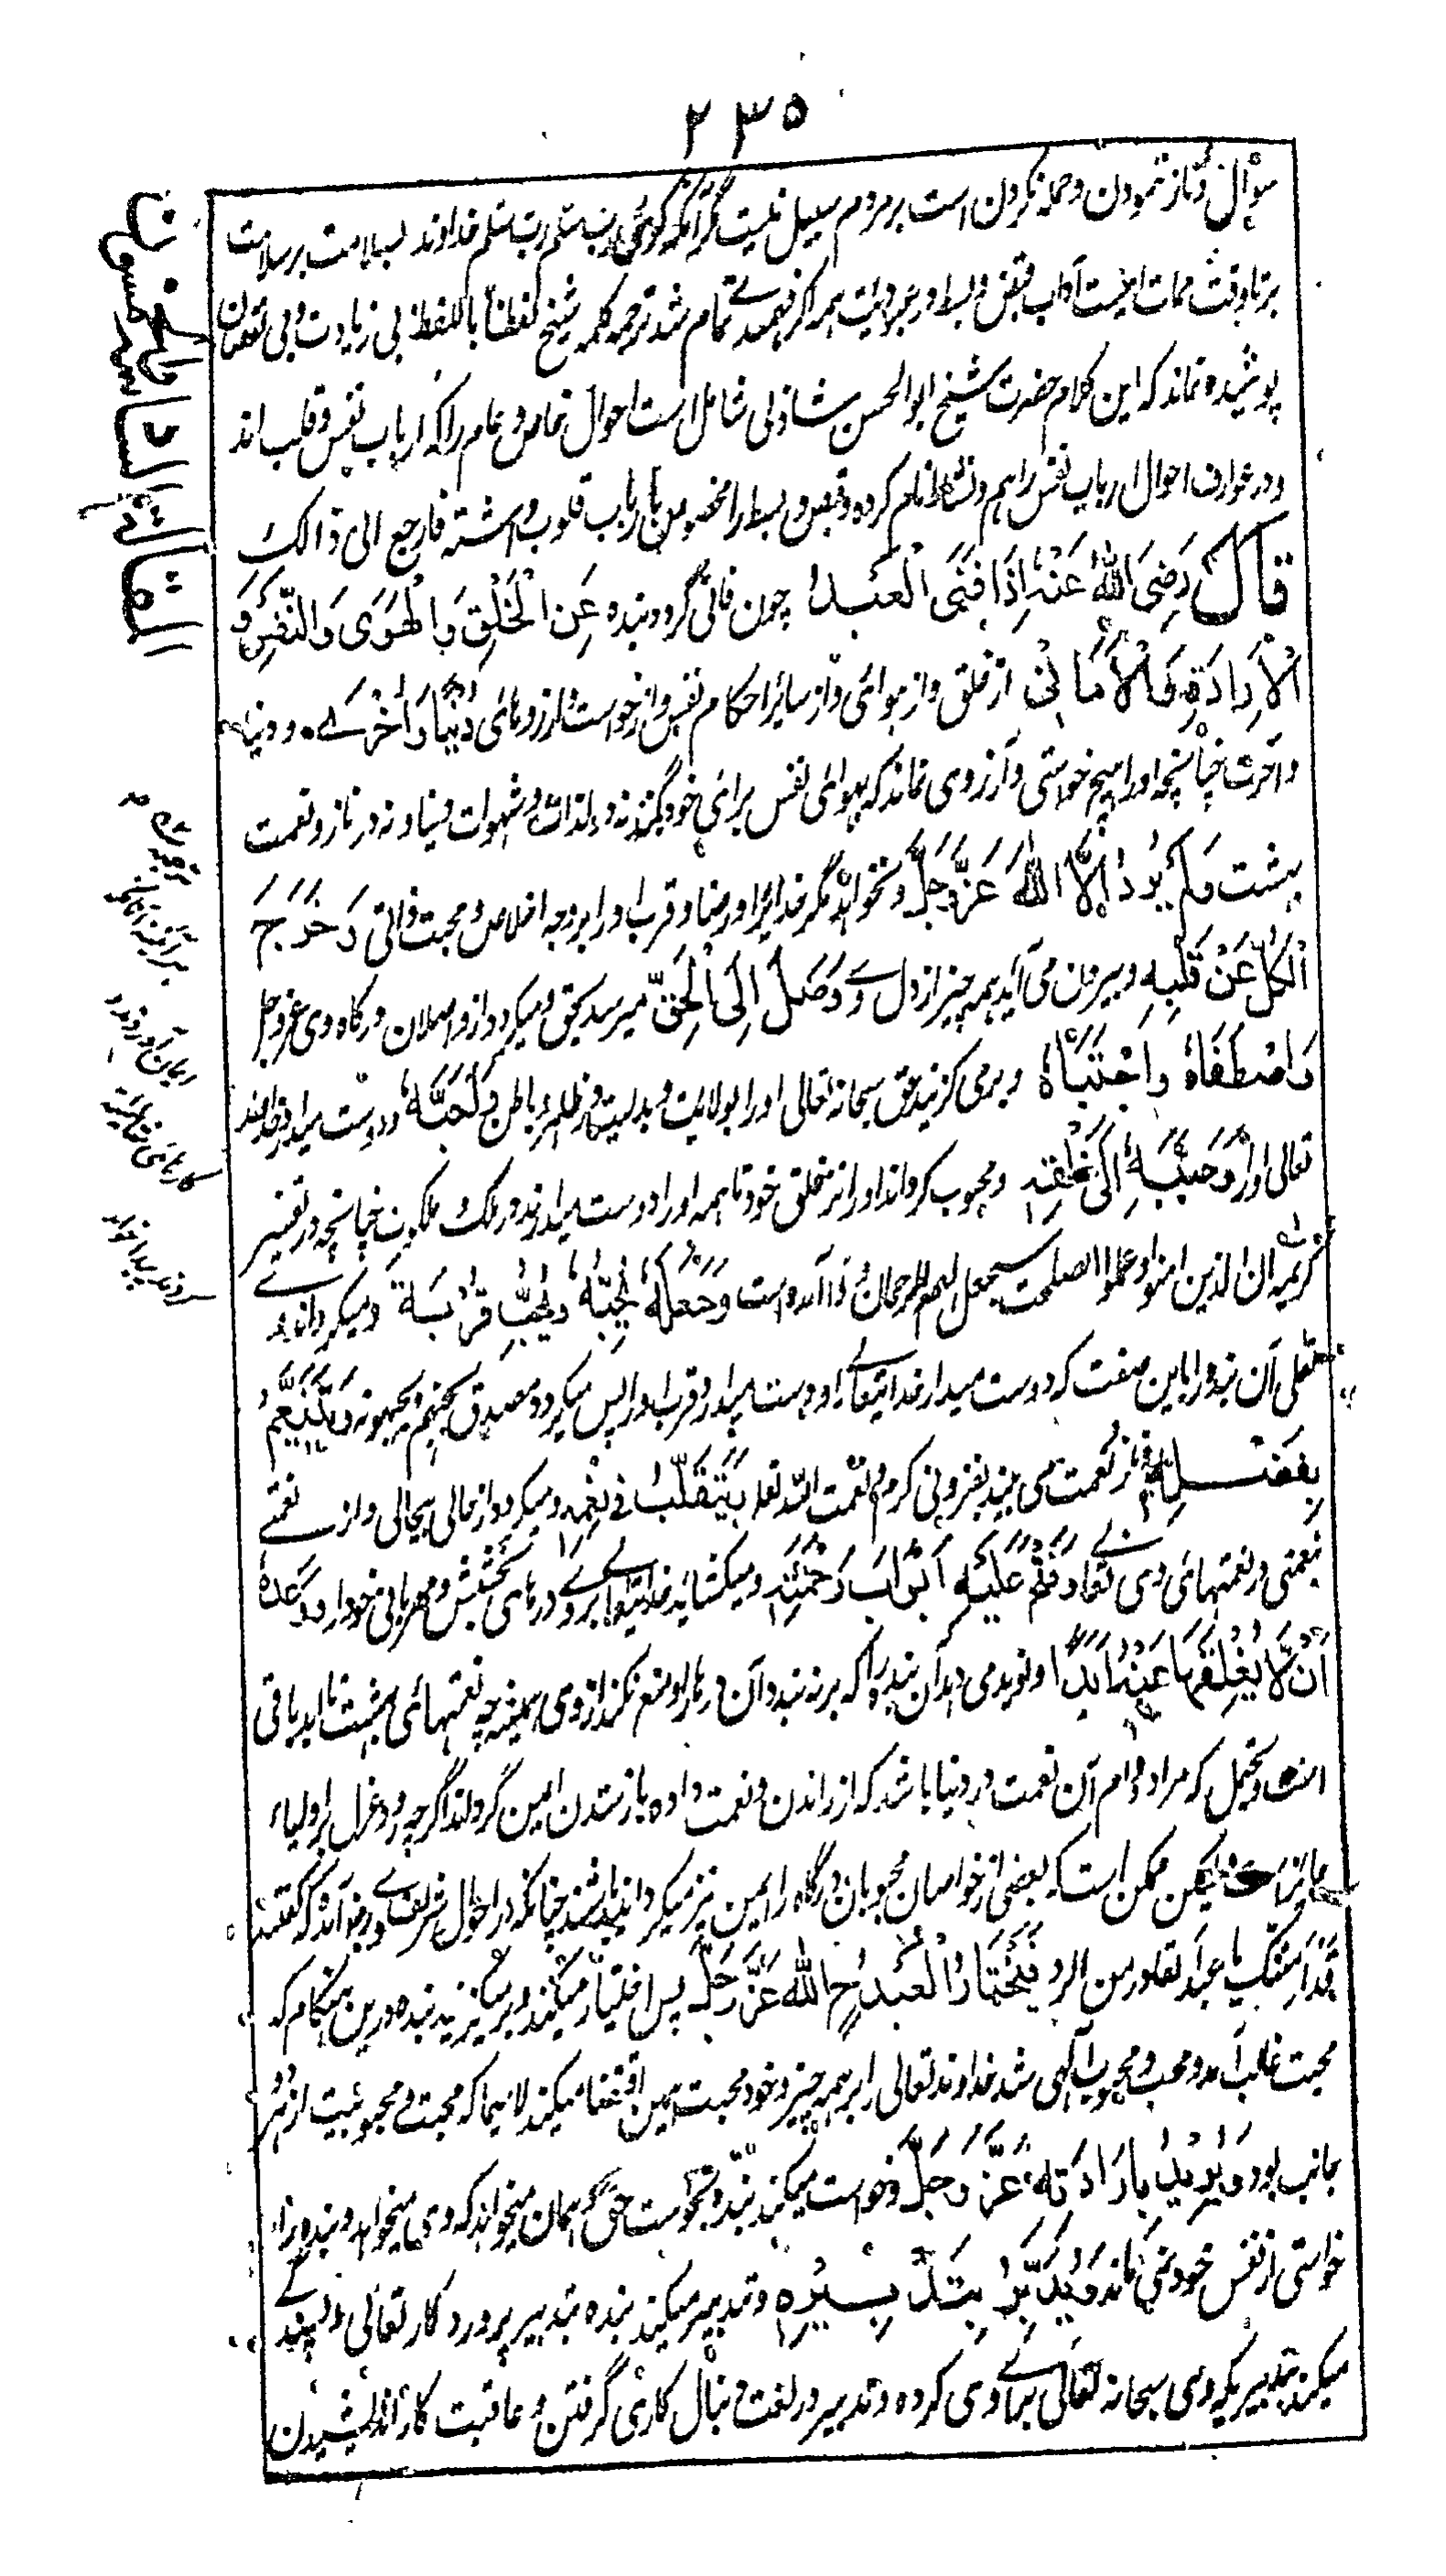 ۲۳۵
سؤال و ناز نمودن و حمله کردن است بر مردم سبیل نیست مگر آنکه گوئی رب سلم رب سلم خداوند بسلامت بر سلامت
بر تا وقت ممات اینست آداب قبض و بسط و عبودیت هر که فهمید تمام شد ترجمه کلمه شیخ لفظاً باللفظ بی زیادت و بی نقصان
پوشیده نماند که این کلام حضرت شیخ ابو الحسن شاذلی شامل است احوال خاص و عام را که ارباب نفس و قلب اند
و در عوارف احوال ارباب نفس را هم و نشاط نام کرده و قبض و بسط را مخصوص بارباب قلوب داشته فارجع الی ذالک
قَالَ رَضِيَ اللّٰهُ عَنْهُ إِذَا فَنِيَ الْعَبْدُ چون فانی گردد بنده عَنِ الْخَلْقِ وَالْهَوٰى وَالنَّفْسِ وَ
الْاِرَادَةِ وَالْاَمَانِيْ از خلق و از هوائی و از سائر احکام نفس و از خواست و آرزوهای دُنْيَا وَاُخْرٰى و دنیا
و آخرت چنانچه او را هیچ خواستی و آرزوی نماند که بهوائی نفس برای خود بکند نه در لذات و شهوات دنیا و نه در ناز و نعمت
بهشت وَلَمْ يُرِدْ اِلَّا اللّٰهَ عَزَّوَجَلَّ و نخواهد مگر خدایرا و رضا و قرب او را بر وجه اخلاص و محبت ذاتی وَخَرَجَ
الْكُلُّ عَنْ قَلْبِهِ و بیرون می آید همه چیز از دل وے وَصَلَ اِلَى الْحَقِّ میرسد بحق و میگردد از واصلان درگاه وی عز و جل
وَاصْطَفَاهُ وَاجْتَبَاهُ و برمی گزیند حق سبحانه تعالی او را بولایت و بدلیت در ظاهر و باطن وَاَحَبَّهُ و دوست میدارد خداوند
تعالی او را وَحَبَّبَهُ اِلٰى خَلْقِهِ و محبوب گرداند او را نزد خلق خود تا همه او را دوست میدارند در ملک و ملکوت چنانچه در تفسیر
کریمه ان الذین امنوا و عملوا الصلحت سیجعل لهم الرحمان ودا آمده است وَجَعَلَهُ يُحِبُّهُ وَيُحِبُّ قُرْبَهُ و میگرداند
تعالی آن بنده را باین صفت که دوست میدارد خدایتعالے را و دوست میدارد قرب او را پس میگردد مصدق یحبهم و یحبونه وَيَتَنَعَّمُ
بِفَضْلِهِ و ناز و نعمت می بیند بفزونی کرم و نعمت الله تعالی وَيَتَقَلَّبُ فِيْ نِعَمِهِ و میگردد از حالی بحالی و از نعمتے
بنعمتی در نعمتهائی وی تعالے وَفَتَحَ عَلَيْهِ اَبْوَابَ رَحْمَتِهِ و میکشاید خدایتعالے بروے درهای بخشش و مهربانی خود را وَوَعَدَهُ
اَنْ لَّا يُغْلِقَهَا عَنْهُ اَبَدًا و نوید می دهد آن بنده را که بر نه بندد آن درها را و منع نکند از وی همیشه چه نعمتهائی بهشت تا ابد باقی
است و یحتمل که مراد دوام آن نعمت در دنیا باشد که از راندن و نعمت داده باز ستدن ایمن گرداند اگرچه رد و عزل بر اولیاء
جائز است لیکن ممکن است که بعضی از خواصان محبوبان درگاه را ایمن نیز میگردانیده باشند چنانکه در احوال شریف وے رض آمده که گفتند
قد امنتک یا عبد القادر من الرد فَيَخْتَارُ الْعَبْدُ حِ اللّٰهَ عَزَّوَجَلَّ پس اختیار میکند و برمیگزیند بنده درین هنگام که
محبت غالب آمد و محب و محبوب الٰهی شد خداوند تعالی را بر همه چیز و خود محبت همین اقتضا میکند لا سیما که محبت و محبوبیت از هر دو
جانب بود وَيُرِيْدُ بِاِرَادَتِهِ عَزَّوَجَلَّ و خواست میکند بنده بخواست حق همان میخواهد که وی میخواهد و بنده را
خواستی از نفس خود نمی ماند وَيُدَبِّرُ بِتَدْبِيْرِهِ و تدبیر میکند بنده بتدبیر پروردگار تعالی و
میکند بتدبیریکه وی سبحانه تعالی برائے وی کرده و تدبیر در لغت دنبال کاری گرفتن و عاقبت کار اندیشیدن
المقالة السادسة والخمسون